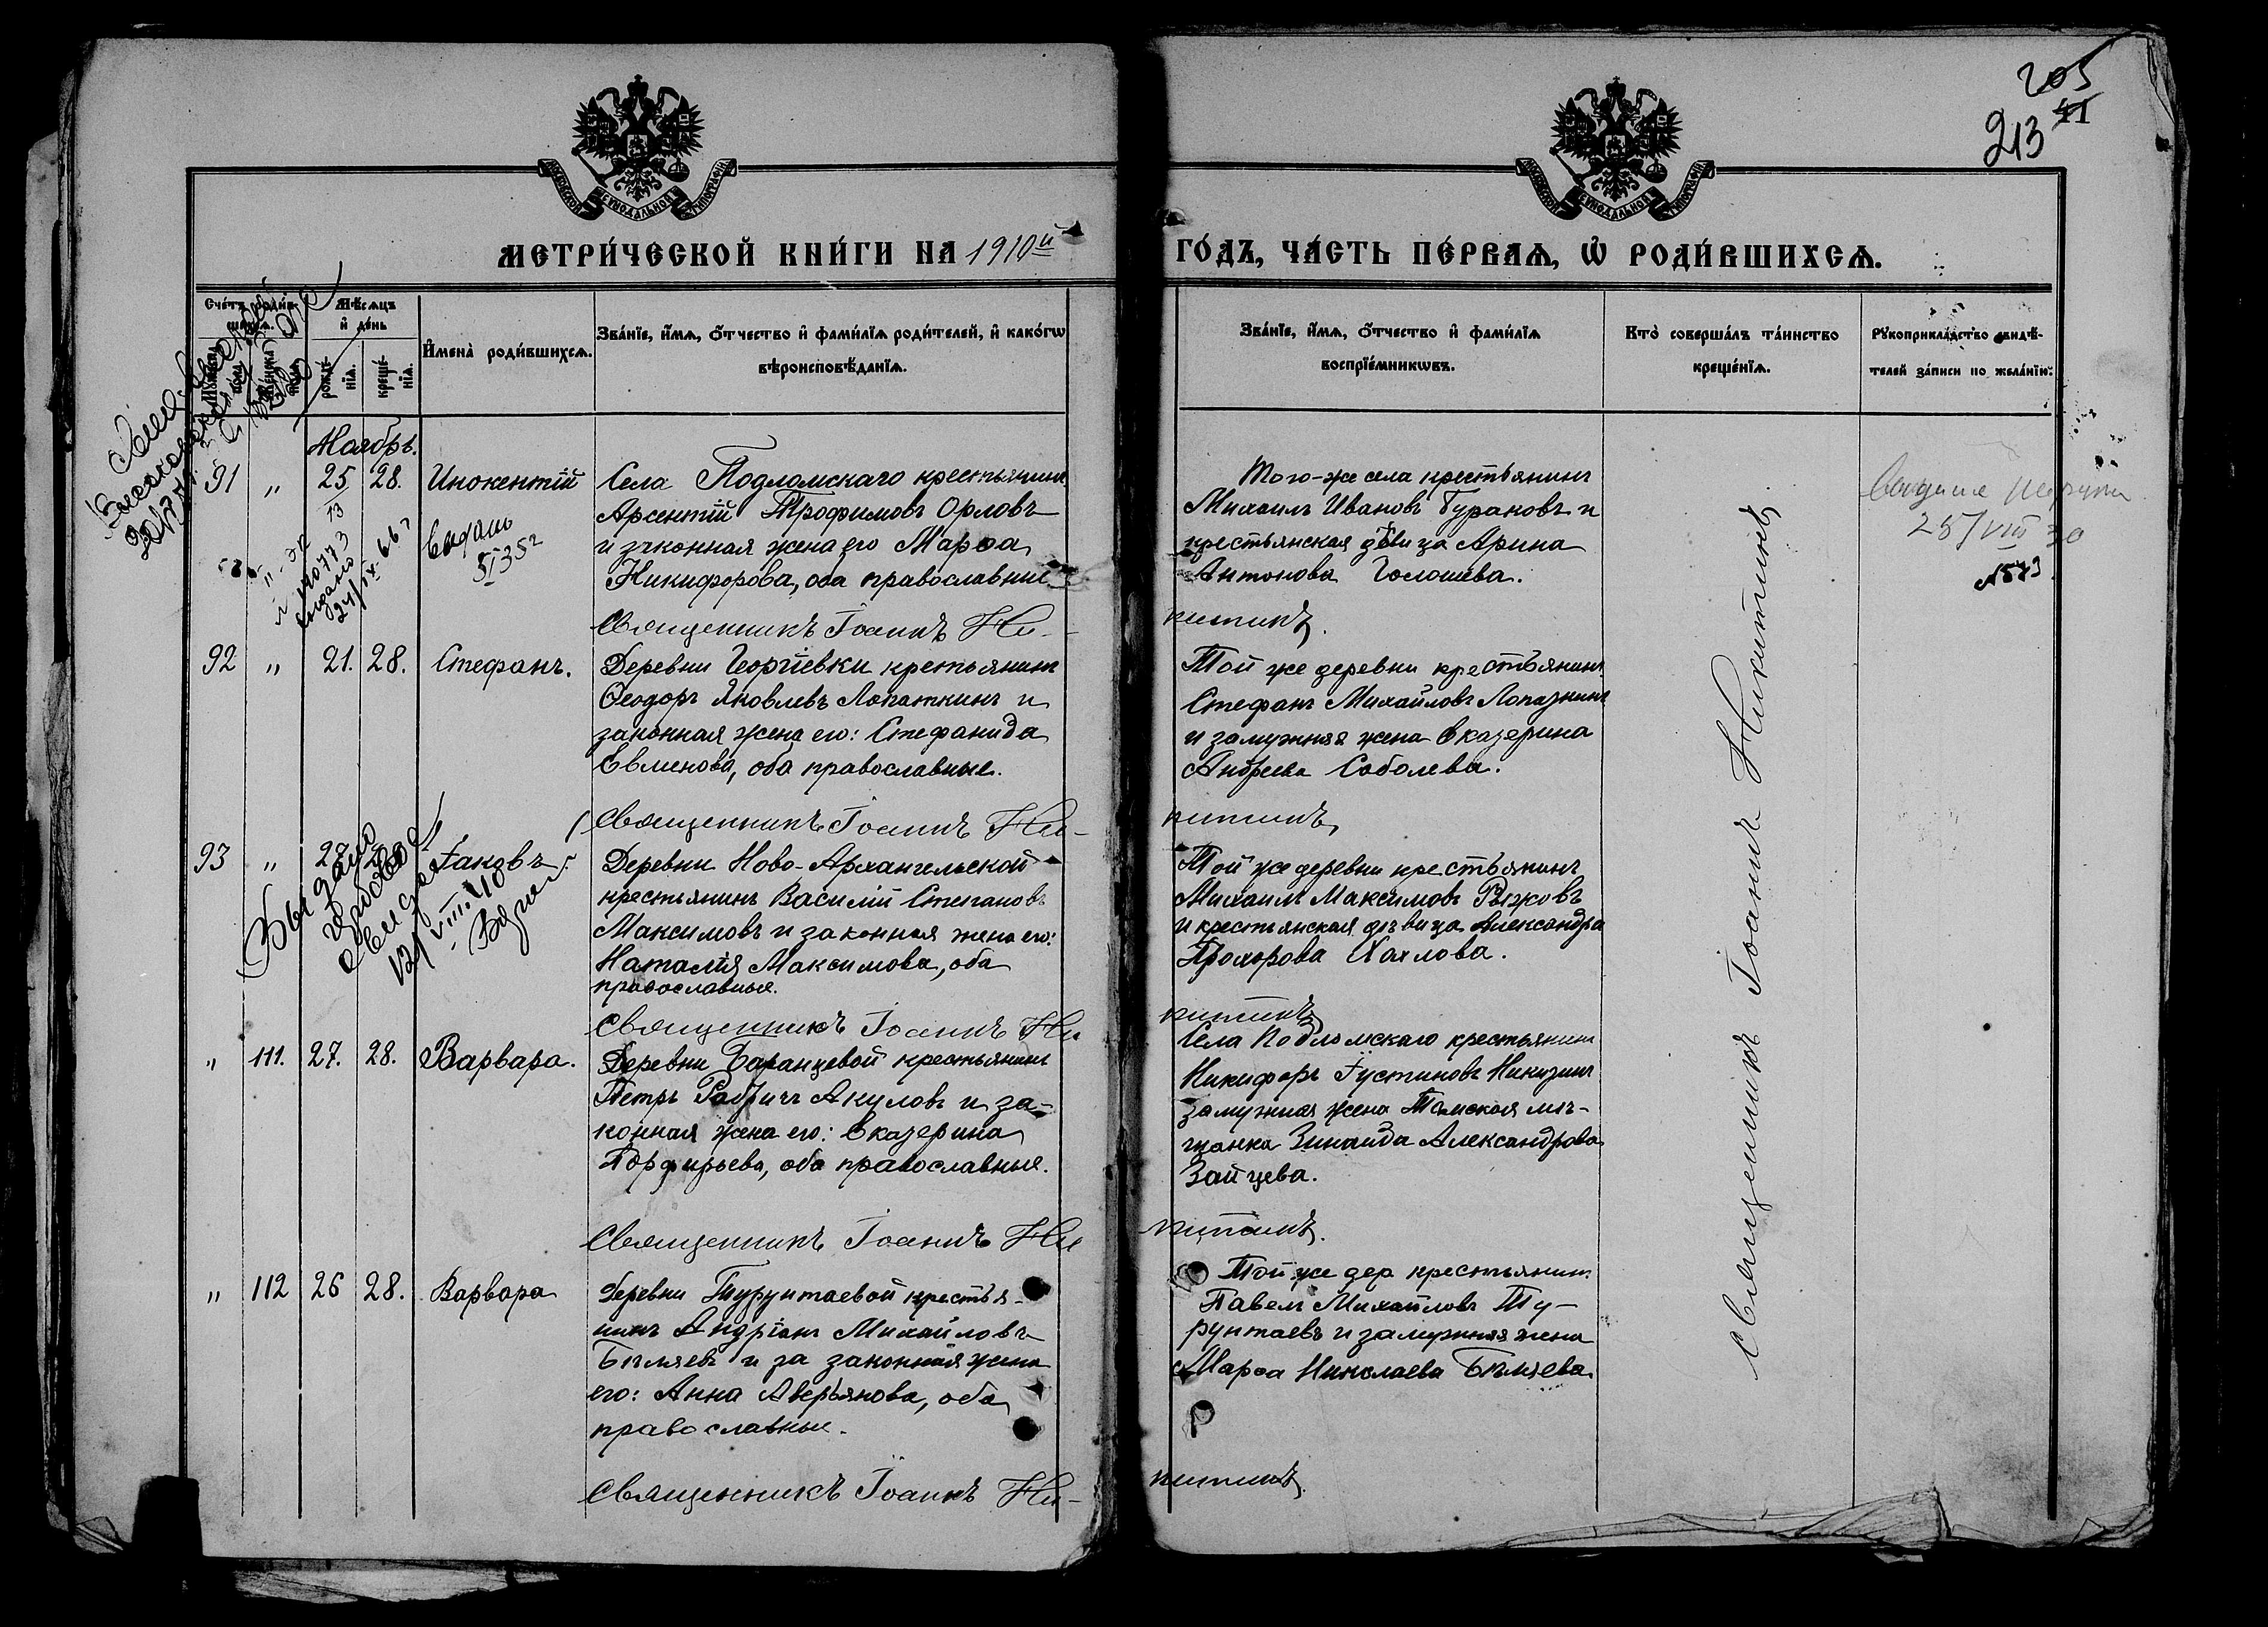 205
213
МОСКОВСКОЙ СѴНОДАЛЬНОЙ ТИПОГРАФІИ
МОСКОВСКОЙ СѴНОДАЛЬНОЙ ТИПОГРАФІИ
МЕТРИ́ЧЕСКОЙ КНИ́ГИ НА 1910й
ГО́ДЪ, ЧА́СТЬ ПЕ́РВАѦ, Ѡ҆ РОДИ́ВШИХСѦ.
Сче́тъ роди́вшихсѧ.
Мѣ́сѧцъ и҆ де́нь
рожде́нїѧ.
креще́нїѧ.
И҆мена̀ роди́вшихсѧ.
Зва́нїе, и҆́мѧ, ѻ҆́тчество и҆ фами́лїѧ роди́телей, и҆ како́гѡ
вѣроисповѣ́данїѧ.
Зва́нїе, и҆́мѧ, ѻ҆́тчество и҆ фами́лїѧ
воспрїе́мникѡвъ.
Кто̀ соверша́лъ та́инство
креще́нїѧ.
Рꙋкоприкла́дство свидѣ́-
телей за́писи по жела́нїю.
Ноябрь.
91 " 25 28. Инокентій
Села Подломскаго крестьянинъ
Арсентій Трофимовъ Орловъ
и законная жена его Марѳа
Никифорова, оба православные
Священникъ Іоаннъ Ни-
Того-же села крестьянинъ
Михаилъ Ивановъ Бураковъ и
крестьянская дѣвица Арина
Антонова Голошева.
китинъ.
13
140773
выдано
24/IX-667
Выдано
352
25/VIII 30
№573
92 " 21. 28. Стефанъ.
Деревни Георгіевки крестьянинъ
Ѳеодоръ Яковлевъ Лопаткинъ и
законная жена его: Стефанида
Евменова, оба православные.
Священникъ Іоаннъ Ни-
Той же деревни крестьянинъ
Стефанъ Михайловъ
и замужняя жена Екатерина
Андреева Соболева.
китинъ
93 " 27 28 Іаковъ.
Деревни Ново-Архангельской
крестьянинъ Василій Степановъ
Максимовъ и законная жена его:
Наталія Максимова, оба
православные.
Священникъ Іоаннъ Ни
Той же деревни крестьянинъ
Михаилъ Максимовъ Рыжовъ
и крестьянская дѣвица Александра
Прохорова Хохлова.
китинъ
Выдано
12/VIII.40
" 111. 27. 28. Варвара.
Деревни Баранцевой крестьянинъ
Петръ Акуловъ и за-
конная жена его: Екатерина
Порфирьева, оба православные.
Священникъ Іоаннъ Ни
Села Подломскаго крестьянинъ
Никифоръ Іустиновъ
замужняя жена Томская мѣ-
щанка Зинаида Александрова
Зайцева.
китинъ.
" 112 26 28. Варвара
Деревни Турунтаевой крестья-
нинъ Андріанъ Михайловъ
Бѣляевъ и за законная жена
его: Анна Аверьянова, оба
православные.
Священникъ Іоаннъ Ни-
Той же дер. крестьянинъ
Павелъ Михайловъ Ту-
рунтаевъ и замужняя жена
Марѳа Николаева Бѣляева.
китинъ.
Священникъ Іоаннъ Никитинъ